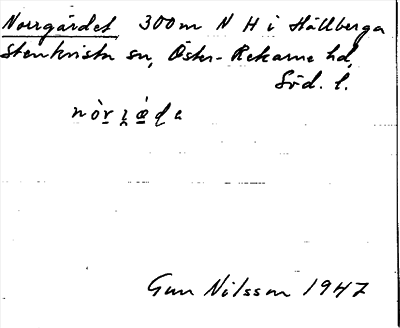 Norrgärdet 300m N H i Hällberga
Stenkvista sn, Öster-Rekarne hd,
Söd. l.
Gun Nilsson 1947